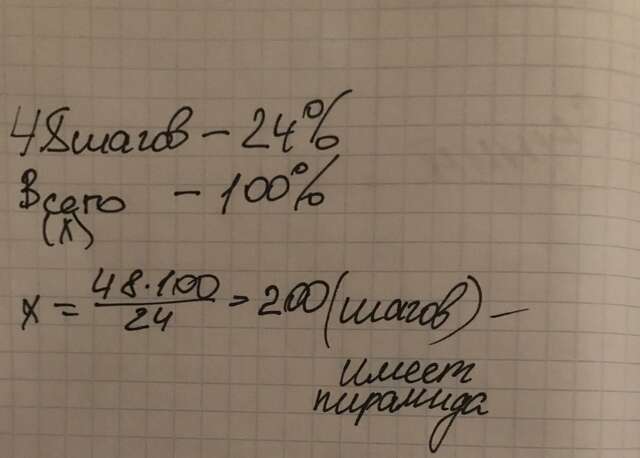 48 шагов - 24%
Всего - 100%
(x)
x = 48·100/24 = 200 (шагов) -
имеет
пирамида